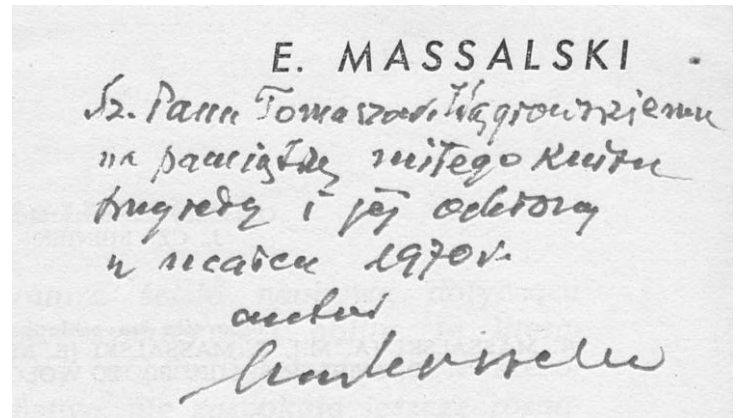 E. MASSALSKI
Sz. Panu Tomaszowi Wągrowskiemu
na pamiątkę miłego
i jej ochrony
w marcu 1970 r.
autor